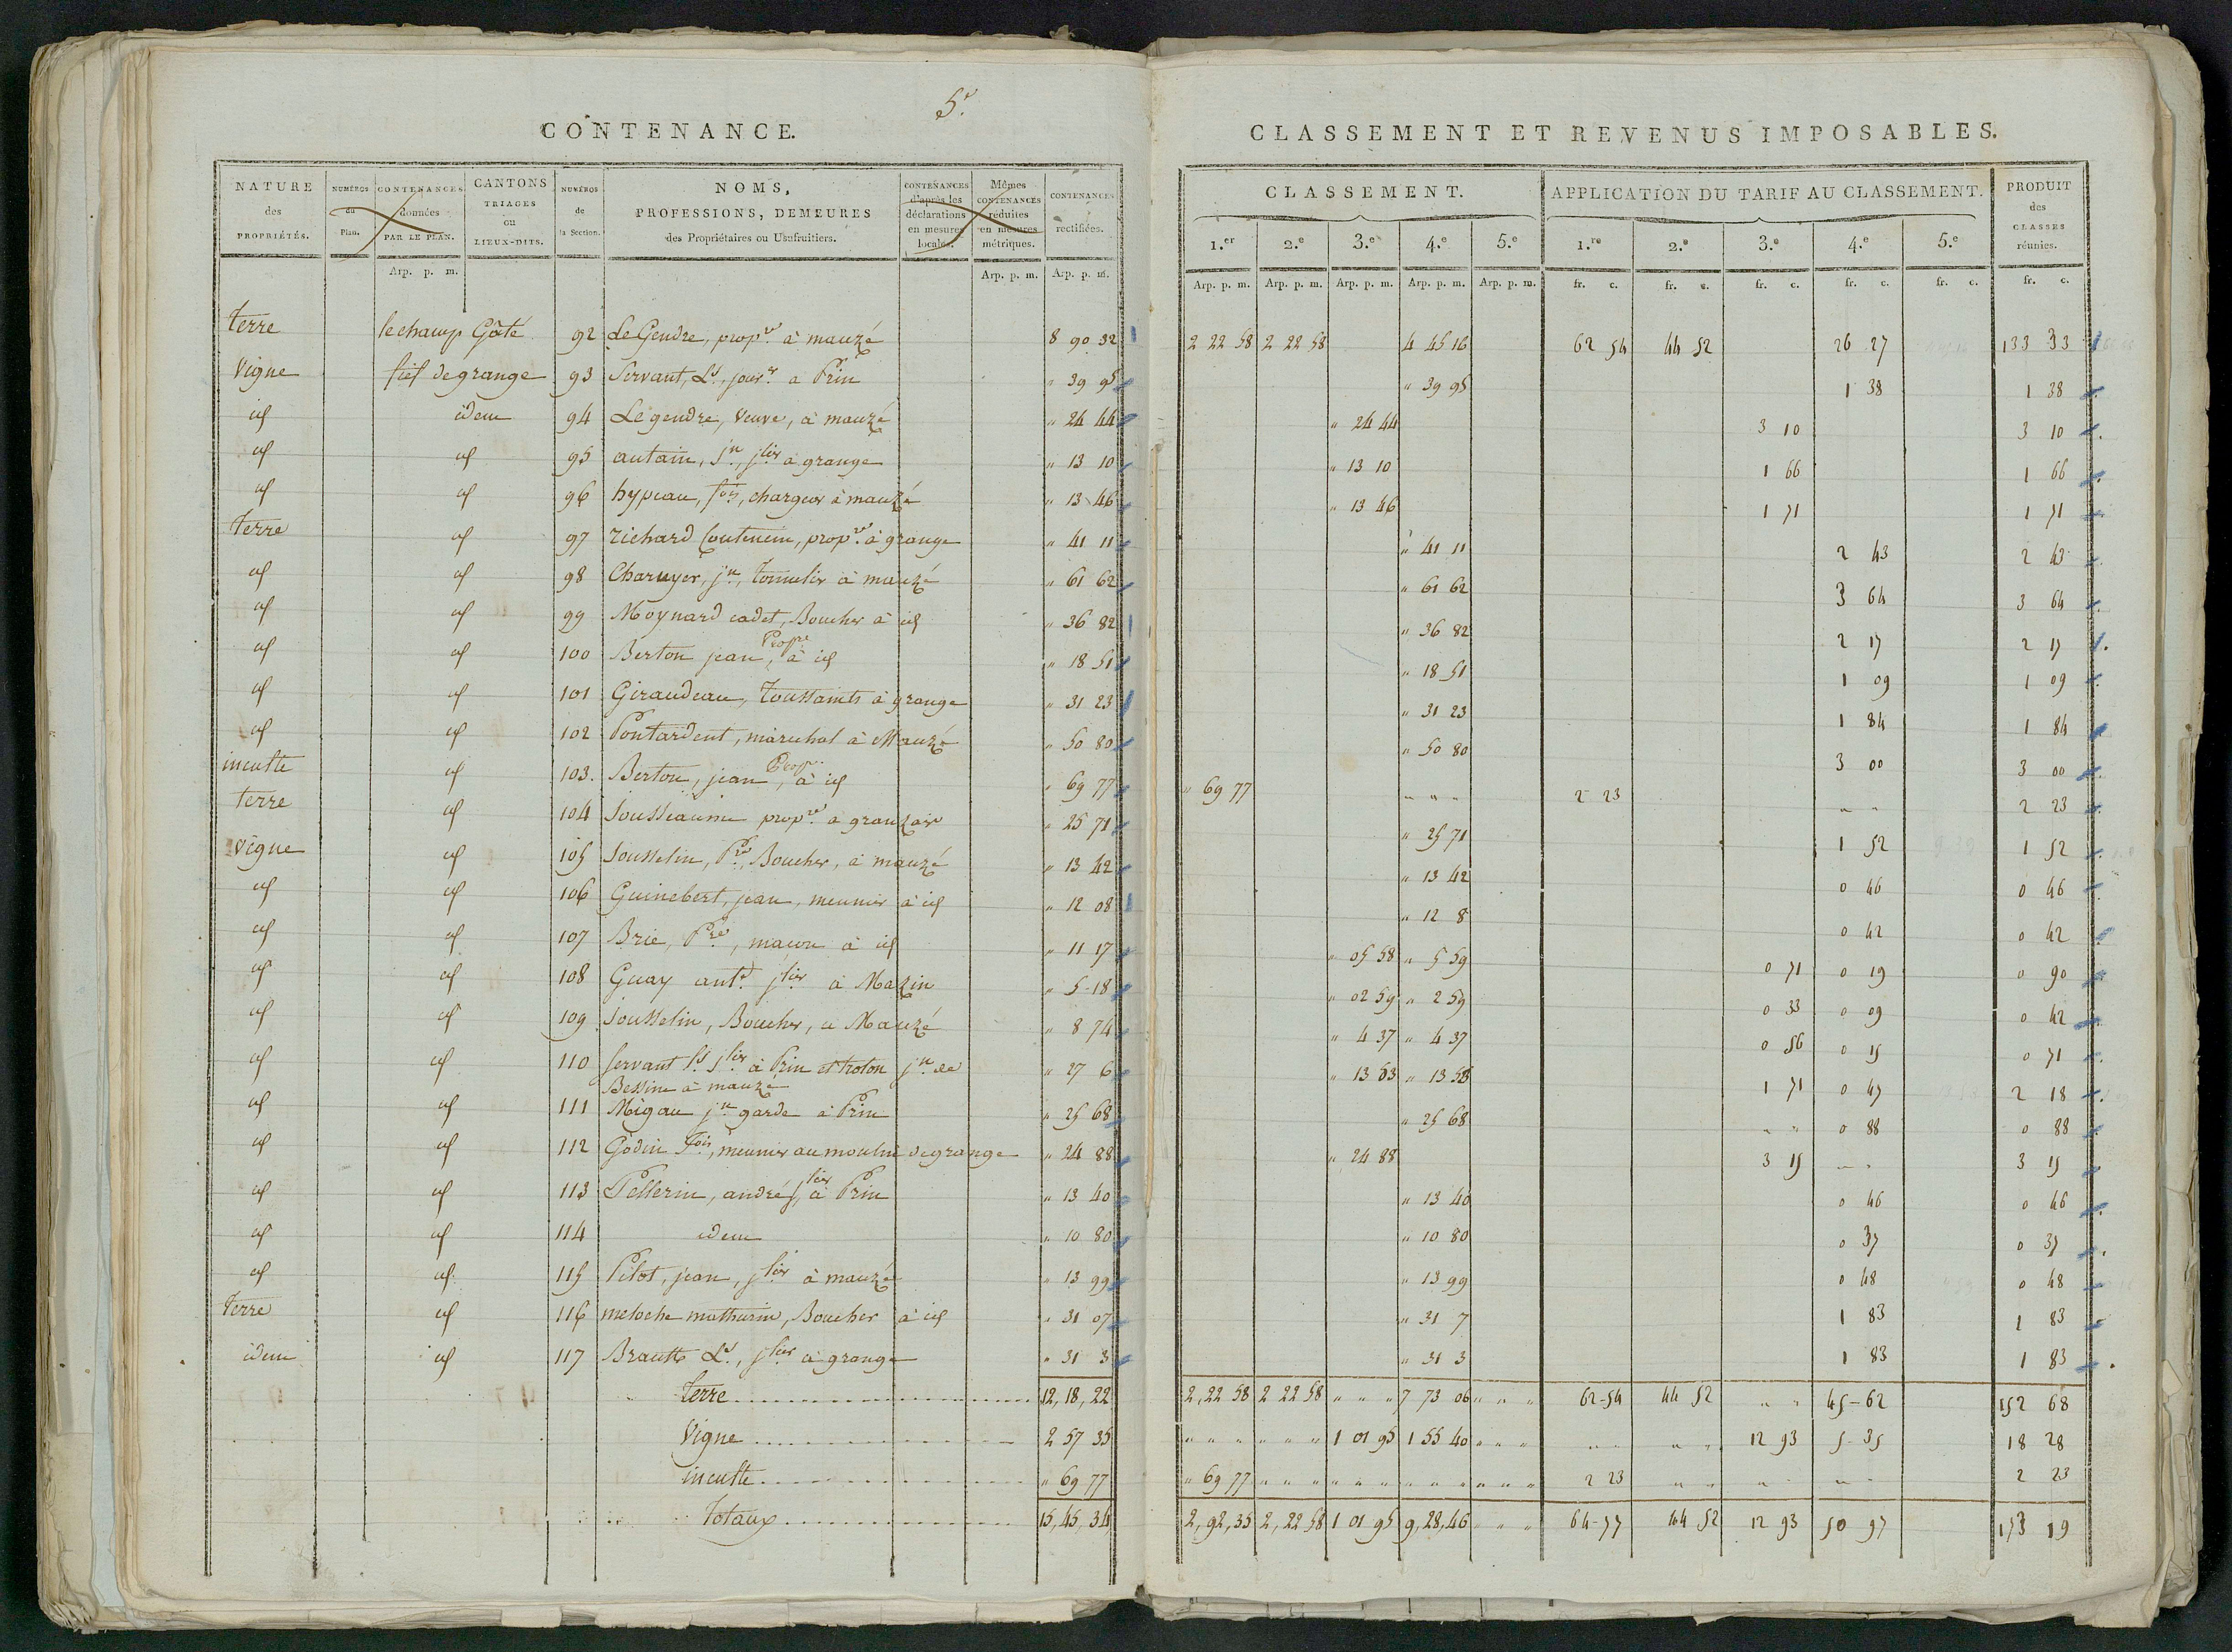 5.e
CONTENANCE.
NATURE des PROPRIÉTÉS. | NUMÉROS du Plan. | CONTENANCES données PAR LE PLAN. | CANTONS TRIAGES ou LIEUX-DITS. | NUMÉROS de la Section. | NOMS, PROFESSIONS, DEMEURES des Propriétaires ou Usufruitiers. | CONTENANCES d'après les déclarations en mesures locales. | Mêmes CONTENANCES réduites en mesures métriques. | CONTENANCES rectifiées.
Arp. p. m. | Arp. p. m. | Arp. p. m.
terre | le champ Gâté | 92 | Le Gendre, prop.re à mauzé | 8 90 32
Vigne | fief de grange | 93 | Servant, L.s, jour.r a Prin | " 39 95
id | idem | 94 | Le gendre, Veuve, à mauzé | " 24 44
id | id | 95 | autain, j.n, j.lier a grange | " 13 10
id | id | 96 | hypeau, f.ois, chargeur à mauzé | " 13 46
terre | id | 97 | richard Coutencin, prop.re à grange | " 41 11
id | id | 98 | Charuyer, j.n, tonnelier à mauzé | " 61 62
id | id | 99 | Moynard cadet, Boucher à id | " 36 82
id | id | 100 | Berton jean, Prop.re à id | " 18 51
id | id | 101 | Giraudeau, toussaints à grange | " 31 23
id | id | 102 | Pontardent, maréchal à Mauzé | " 50 80
inculte | id | 103. | Berton, jean, Prop.re à id | " 69 77
terre | id | 104 | Jousseaume prop.re a granzair | " 25 71
Vigne | id | 105 | Jousselin, P.re, Boucher, à mauzé | " 13 42
id | id | 106 | Guinebert, jean, meunier à id | " 12 08
id | id | 107 | Brie, P.re, maçon à id | " 11 17
id | id | 108 | Guay ant.e j.lier à Mazin | " 5 18
id | id | 109 | Jousselin, Boucher, a Mauzé | " 8 74
id | id | 110 | Servant L.s j.lier à Prin et troton j.n de | " 27 6
Bessine à mauzé
id | id | 111 | Migau j.n garde à Prin | " 25 68
id | id | 112 | Godin F.ois, meunier au moulin de grange | " 24 88
id | id | 113 | Pellerin, andré, j.lier à Prin | " 13 40
id | id | 114 | idem | " 10 80
id | id | 115 | Pilot, jean, j.lier à mauzé | " 13 99
terre | id | 116 | meloche mathurin, Boucher à id | " 31 07
idem | id | 117 | Brault L.s, j.lier à grange | " 31 3
terre | 12, 18, 22
Vigne | 2 57 35
inculte | " 69 77
Totaux | 15, 45, 34
CLASSEMENT ET REVENUS IMPOSABLES.
CLASSEMENT. | APPLICATION DU TARIF AU CLASSEMENT. | PRODUIT des CLASSES réunies.
1.er | 2.e | 3.e | 4.e | 5.e | 1.re | 2.e | 3.e | 4.e | 5.e
Arp. p. m. | Arp. p. m. | Arp. p. m. | Arp. p. m. | Arp. p. m. | fr. c. | fr. c. | fr. c. | fr. c. | fr. c. | fr. c.
2 22 58 | 2 22 58 | 4 45 16 | 62 54 | 44 52 | 26 27 | 133 33
" 39 95 | 1 38 | 1 38
" 24 44 | 3 10 | 3 10
" 13 10 | 1 66 | 1 66
" 13 46 | 1 71 | 1 71
" 41 11 | 2 43 | 2 43
" 61 62 | 3 64 | 3 64
" 36 82 | 2 17 | 2 17
" 18 51 | 1 09 | 1 09
" 31 23 | 1 84 | 1 84
" 50 80 | 3 00 | 3 00
" 69 77 | " " " | 2 23 | " " | 2 23
" 25 71 | 1 52 | 1 52
" 13 42 | 0 46 | 0 46
" 12 8 | 0 42 | 0 42
" 05 58 | " 5 59 | 0 71 | 0 19 | 0 90
" 02 59 | " 2 59 | 0 33 | 0 09 | 0 42
" 4 37 | " 4 37 | 0 56 | 0 15 | 0 71
" 13 53 | " 13 53 | 1 71 | 0 47 | 2 18
" 25 68 | " " | 0 88 | 0 88
" 24 88 | 3 15 | " " | 3 15
" 13 40 | 0 46 | 0 46
" 10 80 | 0 37 | 0 37
" 13 99 | 0 48 | 0 48
" 31 7 | 1 83 | 1 83
" 31 3 | 1 83 | 1 83
2, 22 58 | 2 22 58 | " " " | 7 73 06 | " " " | 62-54 | 44 52 | " " | 45-62 | 152 68
" " " | " " " | 1 01 95 | 1 55 40 | " " " | " " | " " | 12 93 | 5-35 | 18 28
" 69 77 | " " " | " " " | " " " | " " " | 2 23 | " " | " " | " " | 2 23
2, 92, 35 | 2, 22 58 | 1 01 95 | 9, 28, 46 | " " " | 64-77 | 44 52 | 12 93 | 50 97 | 173 19